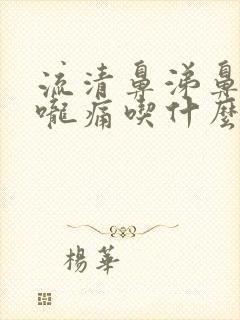 流清鼻涕鼻
嚨痛喫什麼
楊華